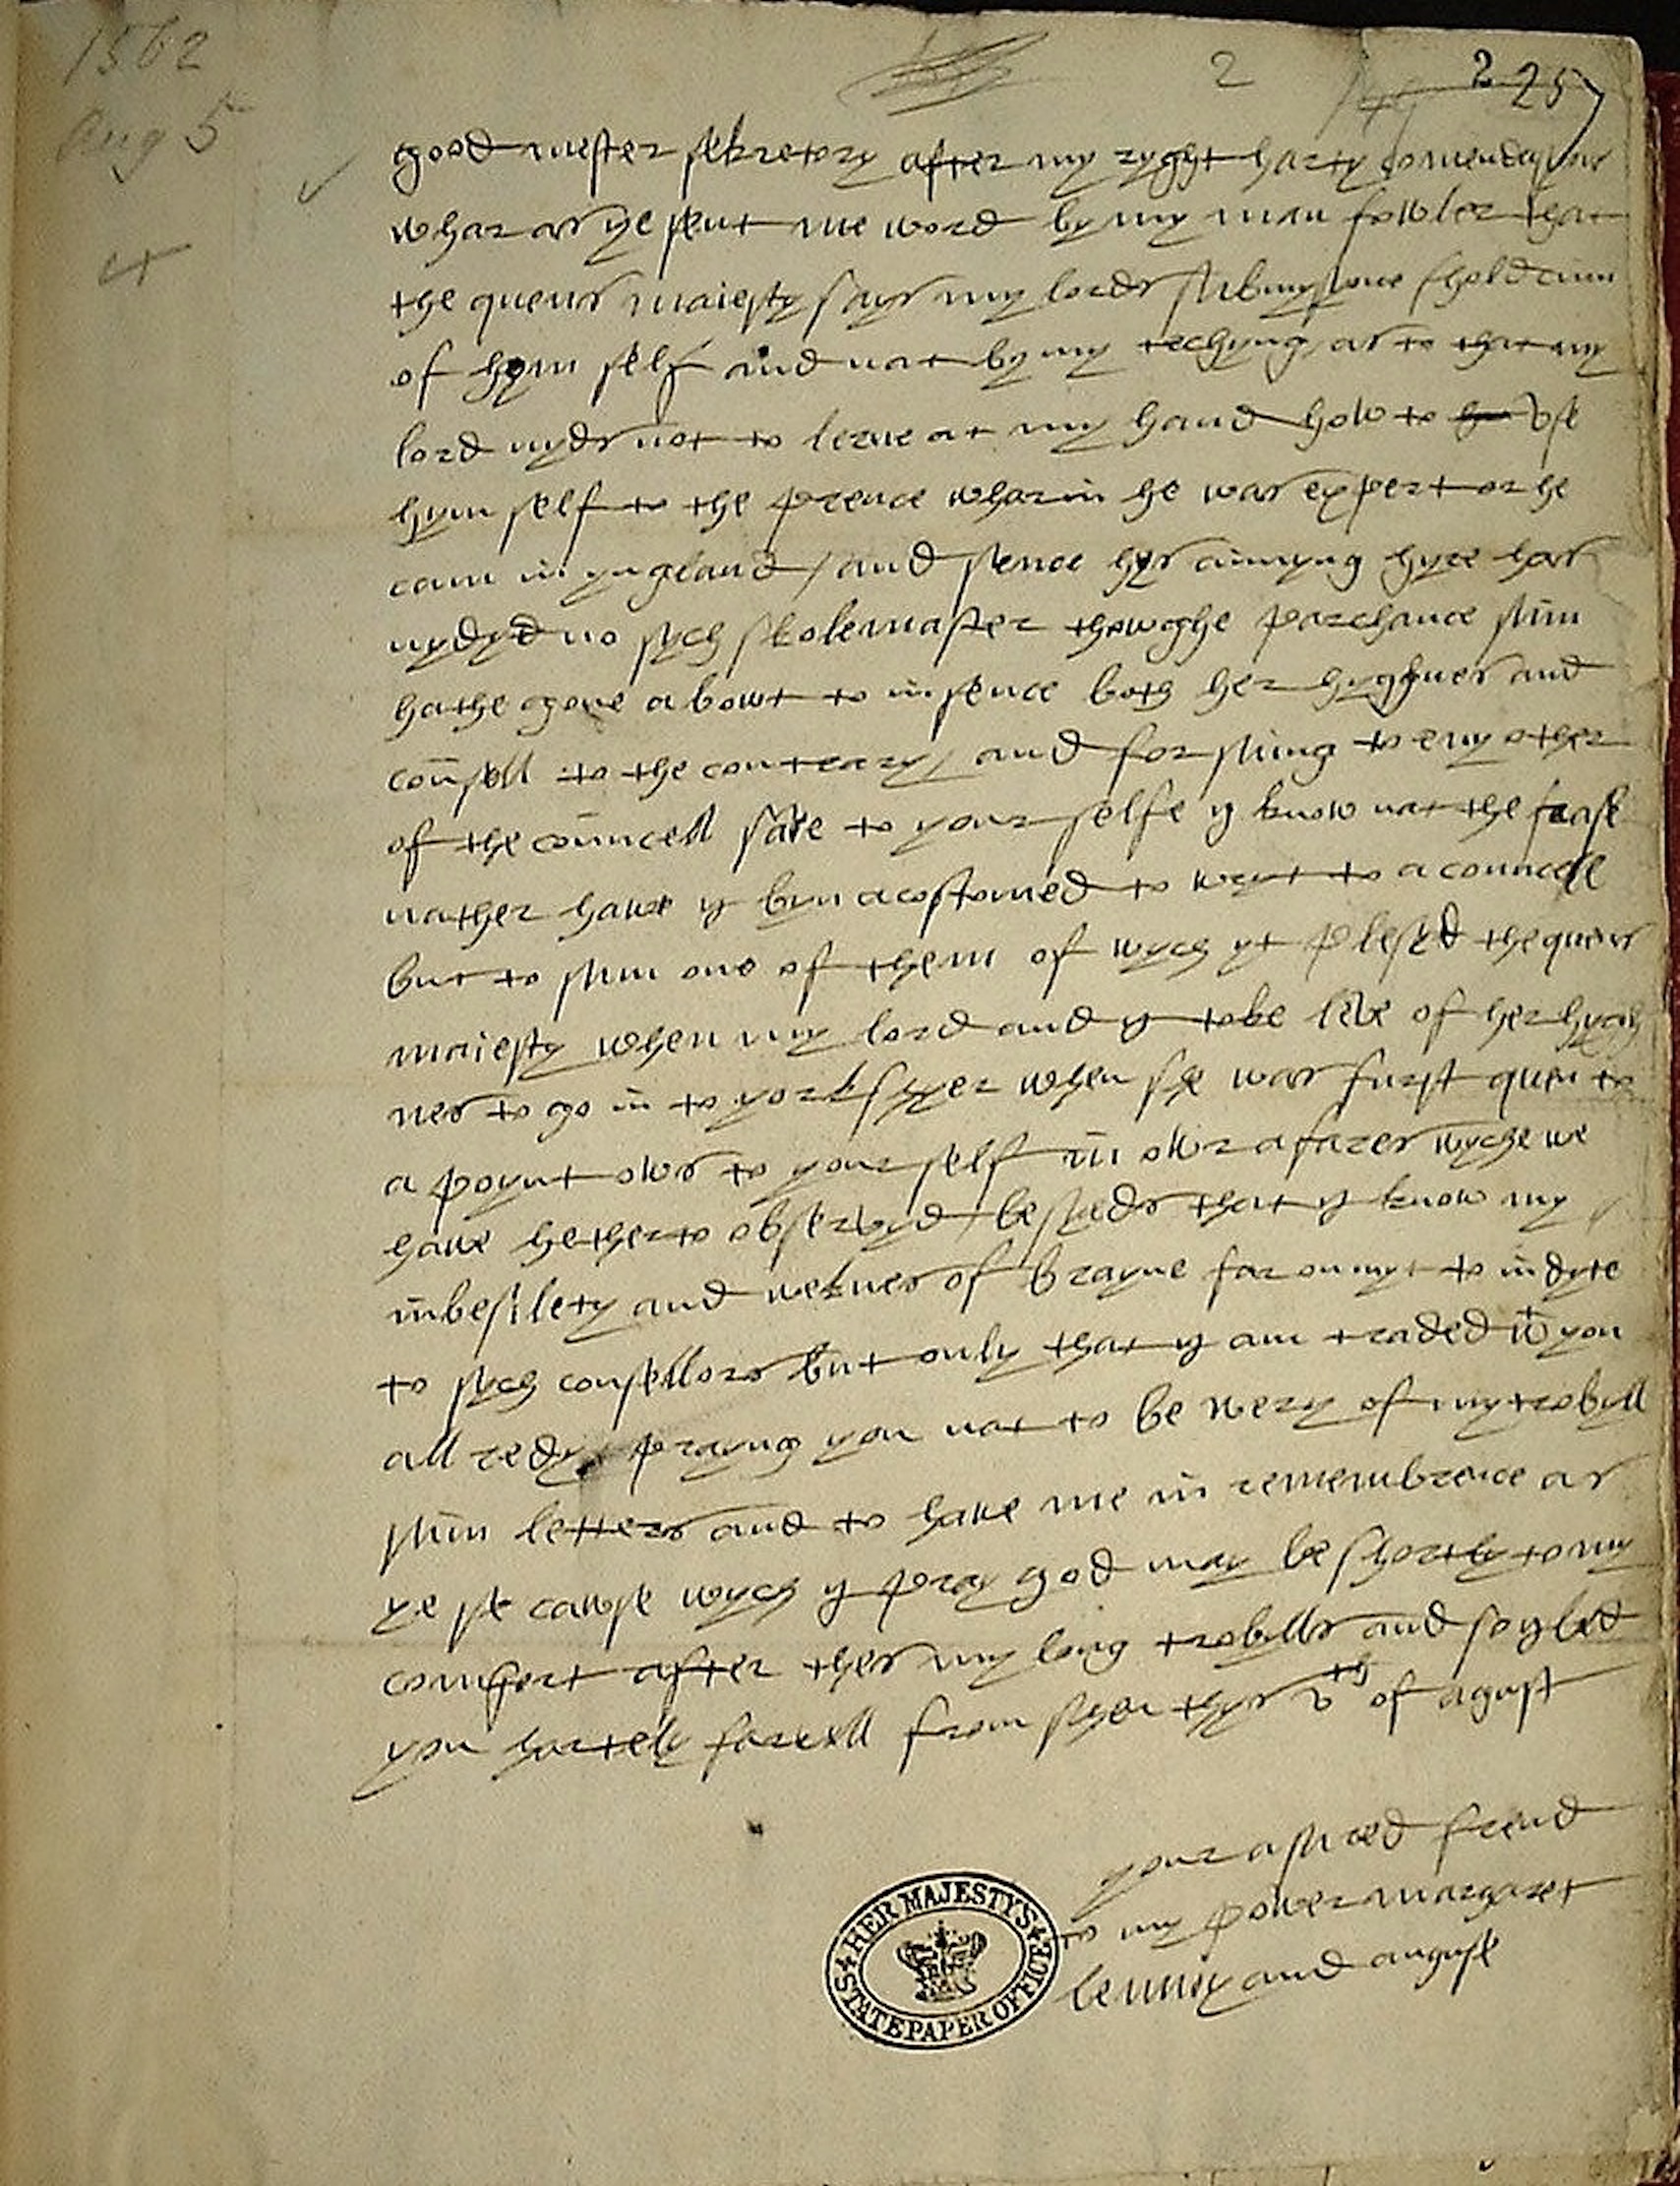 1562
Aug 5
2
2 257
good mester sekretory after my ryght harty comendasyons
whar as ye sent me word by my man fowler that
the quens maiesty says my lords submysyone shold cum
of hym self and nat by my techyng as to that my
lord nyds not to lerne at my hand how to use
hym self to the prence wharin he was expert or he
cam in yngland / and sence hys cumyng hyre has
nydyd no sych skolemaster thowghe parchance sum
hathe gone abowt to insence both her hyghnes and
counsell to the contrary / and for suing to eny other
of the councell save to your selfe y know nat the
nather have y byn acostomed to wryt to a councell
but to sum one of them of wych yt plesyd the quens
maiesty when my lord and y toke leve of her hygh
nes to go in to yorkshyer when she was furst quen to
a poynt ows to your self in owr afares wyche we
have hetherto observyd / besyeds that y know my
inbesilety and weknes of brayne far onmyt to indyte
to sych consellors but only that y am traded wt you
all redy prayng you nat to be wery of my trobyll
sum letters and to have me in remembrence as
ye se cawse wych y pray god may be shortly to my
comfort after thes my long trobylls and so y bed
you hartely farwell from shen thys vth of agust
your asured frend
to my power margaret
lennox and anguse
HER MAJESTY'S
STATE PAPER OFFICE